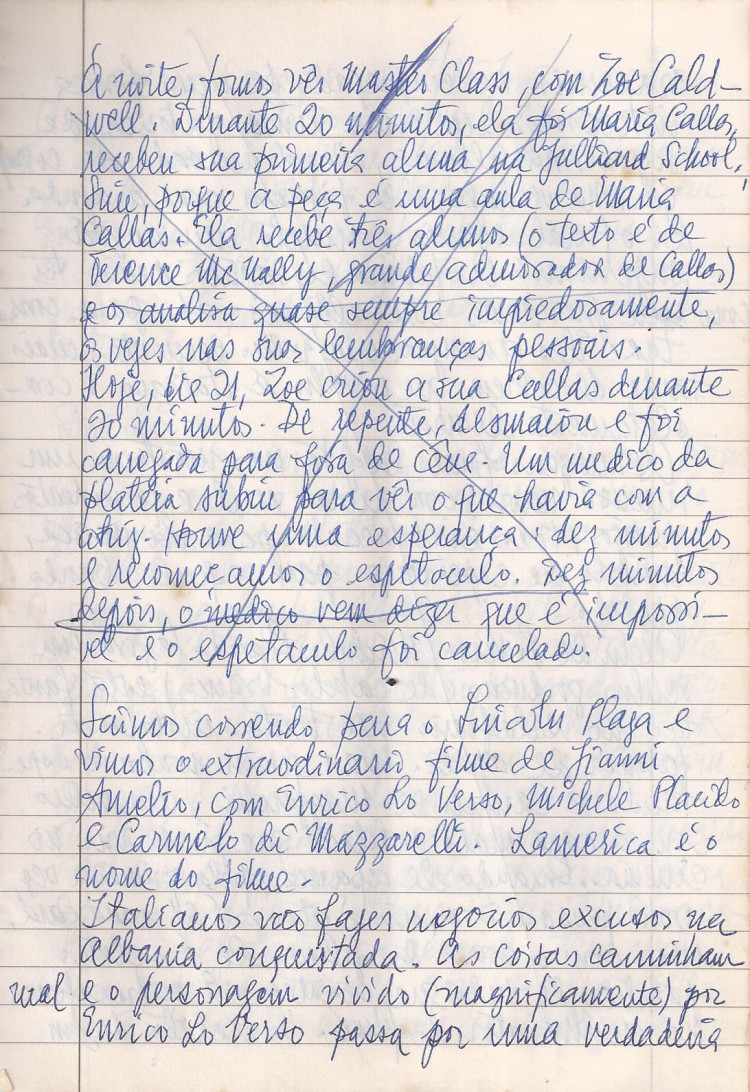 À noite, fomos vêr Master Class, com Zoe Cald-
well. Durante 20 minutos, ela foi Maria Callas,
recebeu sua primeira aluna na Julliard School,
Sim, porque a peça é uma aula de Maria
Callas. Ela recebe três alunos (o texto é de
Terence Mc Nally, grande admirador de Callas)
e os analisa quase sempre impiedosamente,
às vezes nas suas lembranças pessoais.
Hoje, dia 21, Zoe criou a sua Callas durante
20 minutos. De repente, desmaiou e foi
carregada para fora de cena. Um medico da
platéia subiu para vêr o que havia com a
atriz. Houve uma esperança: dez minutos
e recomeçamos o espetaculo. Dez minutos
depois, o medico vem dizer que é impossi-
vel e o espetaculo foi cancelado.
Saimos correndo para o Lincoln Plaza e
vimos o extraordinario filme de Gianni
Amelio, com Enrico Lo Verso, Michele Placido
e Carmelo di Mazzarelli. Lamerica é o
nome do filme.
Italianos vão fazer negocios excusos na
Albania conquistada. As coisas caminham
mal e o personagem vivido (magnificamente) por
Enrico Lo Verso passa por uma verdadeira